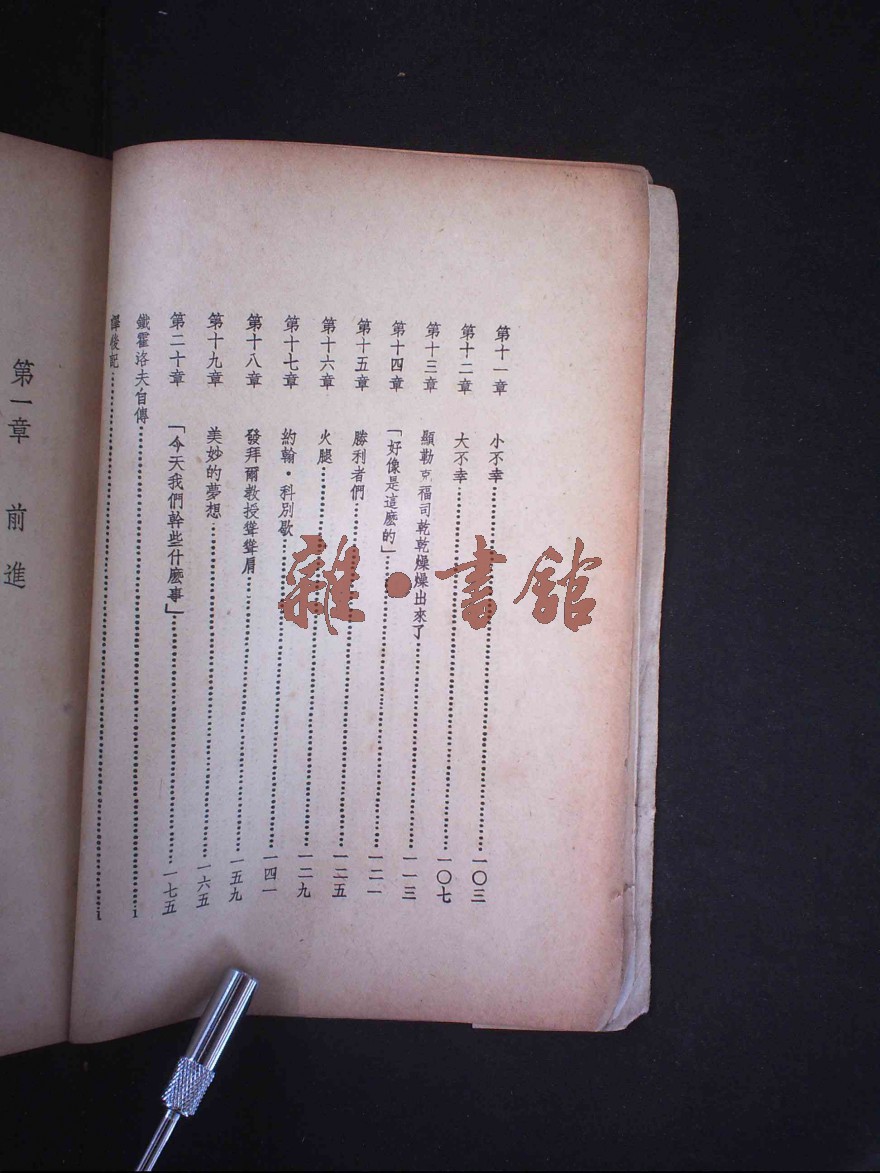 第十一章　小不幸…………一〇三
第十二章　大不幸…………一〇七
第十三章　顯勒克福司乾乾燥燥出來了…………一一三
第十四章　「好像是這麽的」…………一二一
第十五章　勝利者們…………一二五
第十六章　火腿…………一二九
第十七章　約翰·科別歇…………一四一
第十八章　發拜爾教授聳聳肩…………一五九
第十九章　美妙的夢想…………一六五
第二十章　「今天我們幹些什麽事」…………一七五
鐵霍洛夫自傳…………i
譯後記…………i
第一章　前進
雜·書館